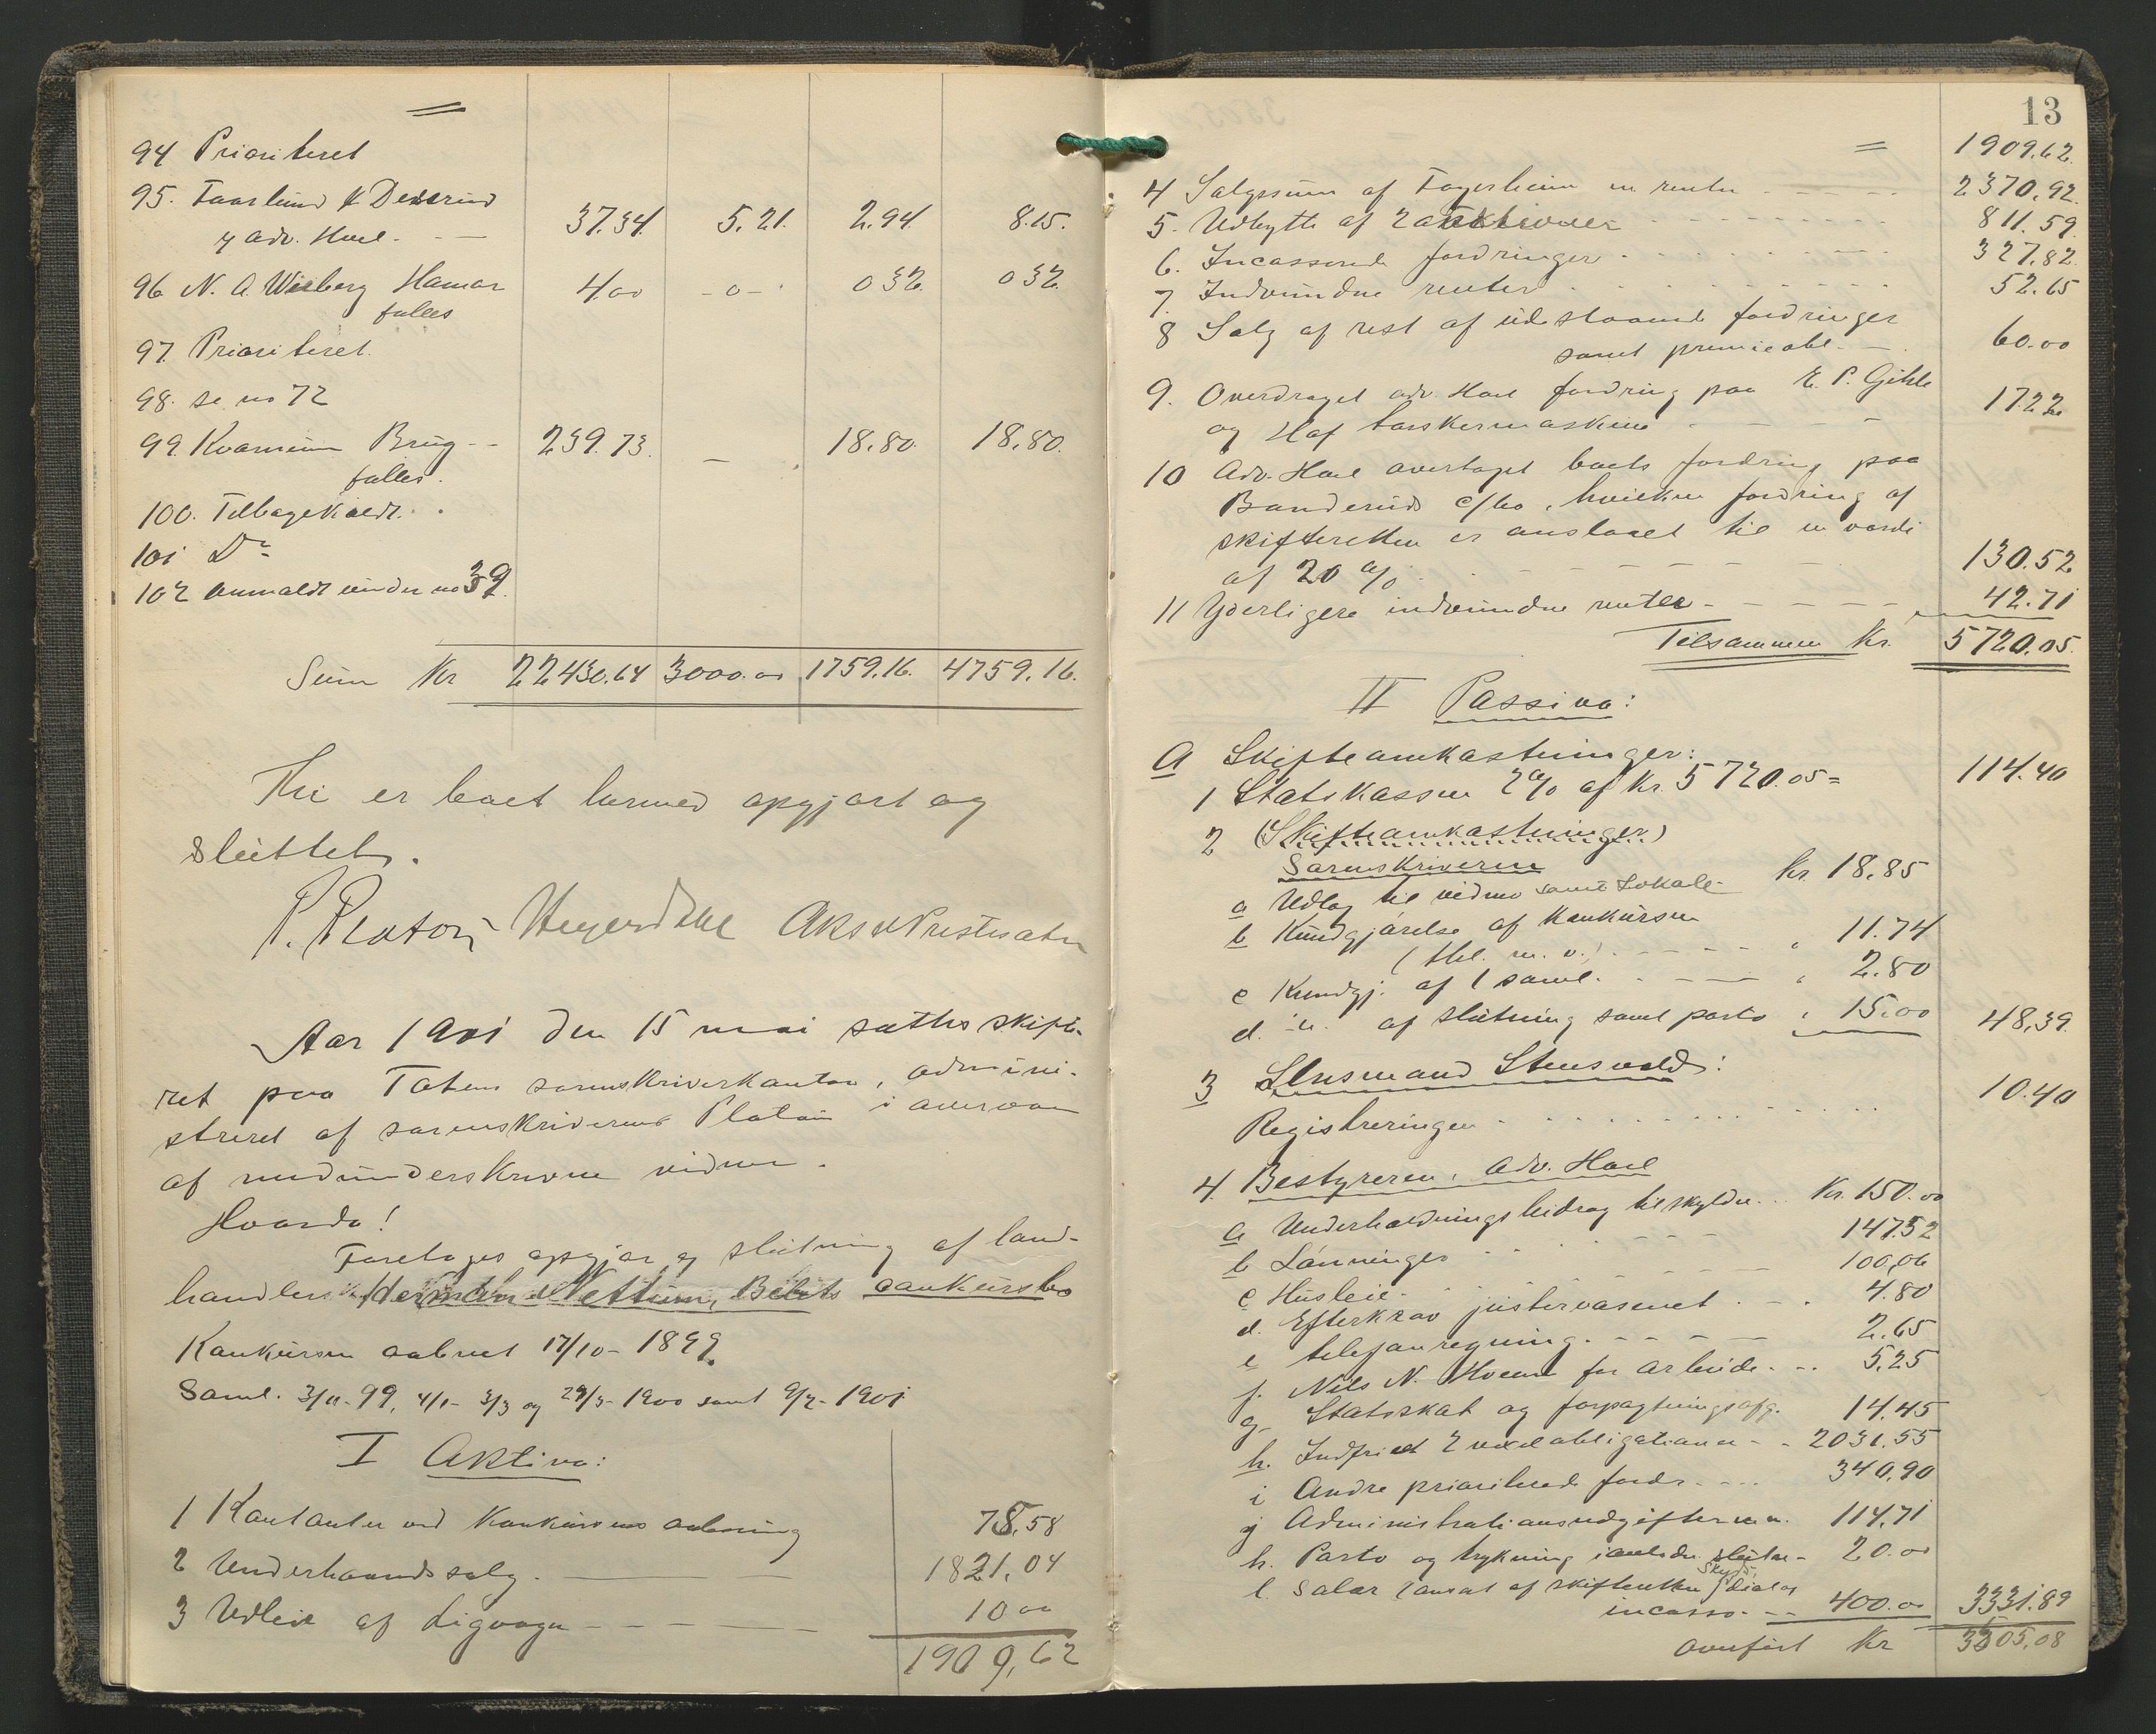 =
94 Prioriteret
95. Faarlund & Dexerud
v/ adv. Hoel. — 37.34. 5.21. 2.94. 8.15.
96 N. A. Wisberg Hamar 4.00 -0- 0 32. 0 32.
falles
97. Prioriteret.
98. se no 72
99. Kvarnum Brug -- 239.73. — 18.80. 18.80.
falles.
100. Tilbagekaldt.
101 Do
102 anmeldt under no 39.
Sum Kr 22430.64 3000.00 1759.16. 4759.16.
Thi er boet hermed opgjort og
sluttet.
P. Platou
Aar 1901 den 15 mai sattes skifte-
ret paa Toten sorenskriverkontor, admini-
streret af sorenskriveren Platou i overvær
af medunderskrevne vidner.
Hvorda!
Foretoges opgjør og slutning af land-
handler Nettum, Bøbits concursbo
Konkursen aabnet 17/10- 1899.
Saml. 3/11-99, 4/1- 3/3 og 29/5-1900 samt 9/2-1901
I Aktiva:
1 Kontanter ved konkursens aabning 78,58
2 Underhaandssalg. — 1821,04
3 Udleie af ligvogn - - - - 10 00
1909,62
13
= 1909.62.
4 Salgssum af Fagerheim m renter - - - 2370.92.
5. Udbytte af 2 auktioner - - - 811.59
6. Incasserede fordringer - - - 327.82.
7. Indvundne renter - - - 52.65
8 Salg af rest af udestaaende fordringer
samt premieobl. — 60.00
9. Overdraget adv. Hoel fordring paa E. P. Gihle
og Hof torskermaskine - - - 17.22
10 Adv. Hoel overtaget boets fordring paa
Banderud c/bo, hvilken fordring af
skifteretten er anslaaet til en værdi
af 20 % - - - 130.52
11 Yderligere indvundne renter - - - 42.71
Tilsammen Kr. 5720.05.
II Passiva:
A Skifteomkostninger:
1 Statskassen 2% af Kr. 5720.05 = 114.40
2 (Skifteomkostninger)
Sorenskriveren
a Udlæg til vidner samt Lokale - Kr. 18.85
b Kundgjørelse af konkursen
(tel. m. v.) - - - " 11.74
c Kundgj. af 1 saml. - - " 2.80
d. " af slutning samt porto " 15.00 48,39.
3 Lensmand Stensvold:
Registreringen - - - 10.40
4. Bestyreren, adv. Hoel
a Underholdningsbidrag til skyldn. .. Kr. 150.00
b Lønninger - - - 147.52
c Husleie. - - - 100,06
d. Efterkrav justervæsenet. - . 4.80
e telefonregning. - - - 2.65
f. Nils N. Hveem for arbeide. -. 5.25
g- Statsskat og forpagtningsafg. 14.45
h. Indfriet 2 vexelobligationer - - 2031.55
i Andre prioriterede fordr. - - - 340,90
j Administrationsudgifter m. m. 114,71
k. Porto og trykning ianledn slutn- 20.00
l. Salær (ansat af skifteretten Skyds, diæter
incasso. -- 400.00 3331.89
overført Kr 3505.08